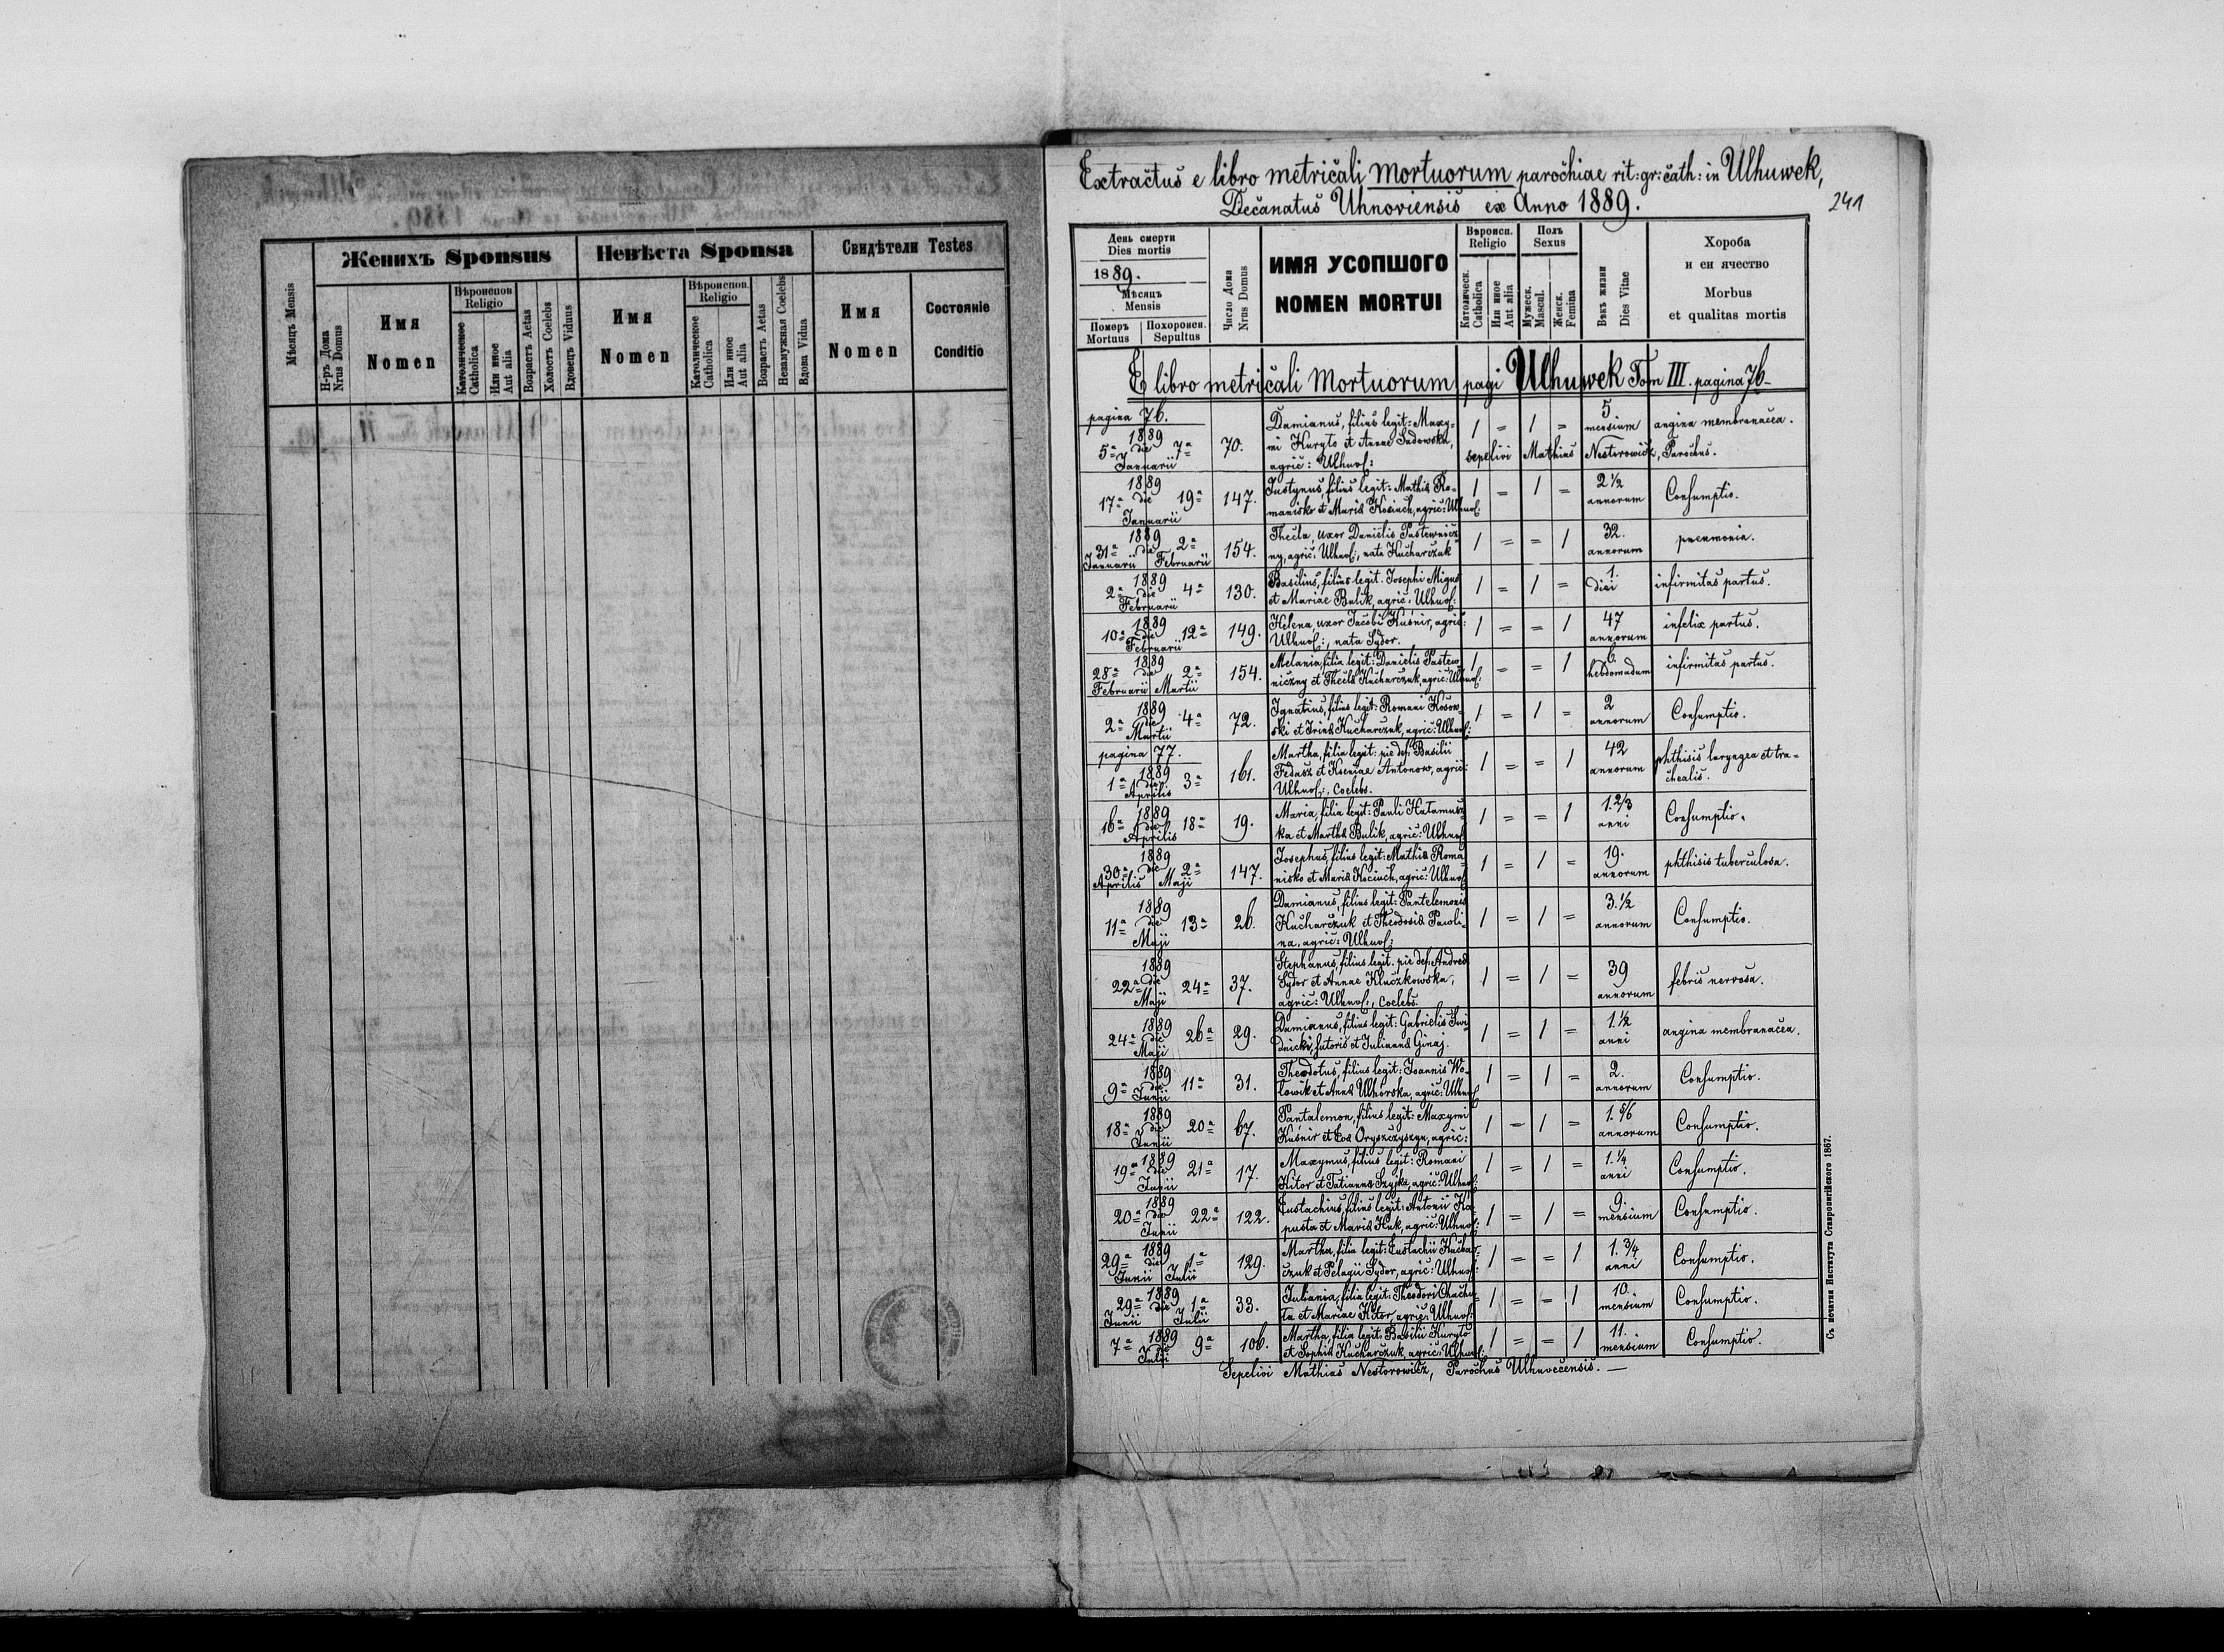 Женихъ Sponsus
Невѣста Sponsa
Свидѣтели Testes
Мѣсяцъ Mensis
Н-ръ Дома
Nrus Domus
Имя
Nomen
Вѣроиспов
Religio
Католическое
Catholica
Или иное
Aut alia
Возрастъ Aetas
Холостъ Coelebs
Вдовецъ Viduus
Имя
Nomen
Вѣроиспов.
Religio
Католическое
Catholica
Или иное
Aut alia
Возрастъ Aetas
Незамужная Coelebs
Вдова Vidua
Имя
Nomen
Состояніе
Conditio
Extractus e libro metricali Mortuorum parochiae rit: gr: cath: in Ulhuwek,
Decanatus Uhnoviensis ex Anno 1889.
241
День смерти
Dies mortis
1889.
Мѣсяцъ
Mensis
Померъ
Mortuus
Похоронен.
Sepultus
Число Дома
Nrus Domus
ИМЯ УСОПШОГО
NOMEN MORTUI
Вѣроисп.
Religio
Католическ.
Catholica
Или иное
Aut alia
Полъ
Sexus
Мужеск.
Mascul.
Женск.
Femina
Вѣкъ жизни
Dies Vitae
Хороба
и еи ячество
Morbus
et qualitas mortis
E libro metricali Mortuorum pagi Ulhuwek Tom III. pagina 76
pagina 76.
1889
5ª die 7ª
Januarii
70.
Damianus, filius legit: Maxy-
mi Kuryło et Annae Sadowska,
agric: Ulhuv:
1 = 1 =
5
mensium
angina membranacea.
sepelivi Mathias Nestorowicz, Parochus.
1889
17ª die 19ª
Januarii
147.
Justynus, filius legit: Mathia Ro-
manisko et Maria Kosiuch, agric: Ulhuv:
1 = 1 =
2 1/2
annorum
Consumptio.
1889
31ª die 2ª
Januarii Februarii
154.
Thecla, uxor Danielis Pastewnicz-
ny, agric: Ulhuv:, nata Kucharczuk
1 = = 1
32.
annorum
pneumonia.
1889
2ª die 4ª
Februarii
130.
Basilius, filius legit. Josephi Migus
et Mariae Bulik, agric: Ulhuv:
1 = 1 =
1.
diei
infirmitas partus.
1889
10ª die 12ª
Februarii
149.
Helena, uxor Jacobi Kuśnir, agric:
Ulhuv:, nata Sydor.
1 = = 1
47
annorum
infelix partus.
1889
28ª die 2ª
Februarii Martii
154.
Melania, filia legit: Danielis Pastew-
niczny et Thecla Kucharczuk, agric: Ulhuv:
1 = = 1
6.
hebdomadum
infirmitas partus.
1889
2ª die 4ª
Martii
72.
Ignatius, filius legit: Romani Kosow-
ski et Irina Kucharczuk, agric: Ulhuv:
1 = 1 =
2
annorum
Consumptio.
pagina 77.
1889
1ª die 3ª
Aprilis
161.
Martha, filia legit: pie def: Basilii
Fedasz et Kseniae Antonow, agric:
Ulhuv:, Coelebs.
1 = = 1
42
annorum
phthisis laryngea et tra-
chealis.
1889
16ª die 18ª
Aprilis
19.
Maria, filia legit: Pauli Hałamusz-
ka et Martha Bulik, agric: Ulhuv:
1 = = 1
1. 2/3
anni
Consumptio.
1889
30ª die 2ª
Aprilis Maji
147.
Josephus, filius legit: Mathia Roma-
nisko et Maria Kociuch, agric: Ulhuv:
1 = 1 =
19.
annorum
phthisis tuberculosa.
1889
11ª die 13ª
Maji
26.
Damianus, filius legit: Pantelemonis
Kucharczuk et Theodosia Pawli-
na, agric: Ulhuv:
1 = 1 =
3. 1/2
annorum
Consumptio.
1889
22ª die 24ª
Maji
37.
Stephanus, filius legit. pie def: Andrea
Sydor et Annae Kluczkowska,
agric: Ulhuv:, Coelebs.
1 = 1 =
39
annorum
febris nervosa.
1889
24ª die 26ª
Maji
29.
Damianus, filius legit: Gabrielis Swi-
dnicki, sutoris et Julianna Ginaj.
1 = 1 =
1. 1/2
anni
angina membranacea.
1889
9ª die 11ª
Junii
31.
Theodotus, filius legit: Joannis Wo-
łowik et Anna Ulhorska, agric: Ulhuv:
1 = 1 =
2.
annorum
Consumptio.
1889
18ª die 20ª
Junii
67.
Pantalemon, filius legit: Maxymi
Kuśnir et Eva Oryszczyszyn, agric:
1 = 1 =
1. 5/6
annorum
Consumptio.
1889
19ª die 21ª
Junii
17.
Maxymus, filius legit: Romani
Kitor et Tatianna Szypka, agric: Ulhuv:
1 = 1 =
1. 1/4
anni
Consumptio.
1889
20ª die 22ª
Junii
122.
Eustachius, filius legit: Antonii Ka-
pusta et Maria Huk, agric: Ulhuv:
1 = 1 =
9.
mensium
Consumptio.
1889
29ª die 1ª
Junii Julii
129.
Martha, filia legit: Eustachii Kuchar-
czuk et Pelagii Sydor, agric: Ulhuv:
1 = = 1
1. 3/4
anni
Consumptio.
1889
29ª die 1ª
Junii Julii
33.
Juliania, filia legit: Theodori Chachu-
ła et Mariae Kitor, agric: Ulhuv:
1 = = 1
10.
mensium
Consumptio.
1889
7ª die 9ª
Julii
106.
Martha, filia legit: Basilii Kuryło
et Sophia Kucharczuk, agric: Ulhuv:
1 = = 1
11.
mensium
Consumptio.
Sepelivi Mathias Nestorowicz, Parochus Ulhuvecensis.
Съ печатни Института Ставропигійского 1867.